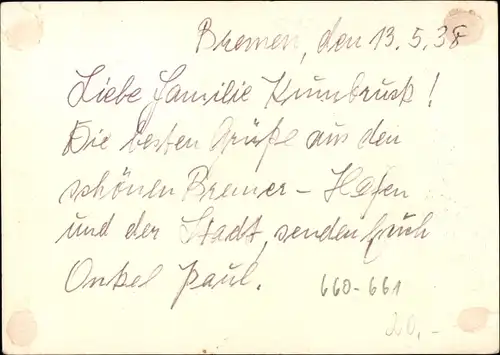 Bremen, den 13.5.38
Liebe Familie Krumbrusk!
Die besten Grüße aus den
schönen Bremer-Hafen
und der Stadt, senden Euch
Onkel Paul.
660-661
20.-